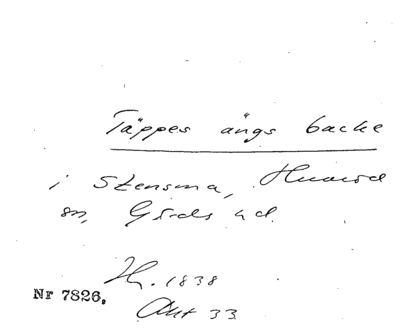 Täppes ängs backe
i Stensma, Huaröd
sn, Gärds hd.
Hr. 1838
Nr 7826.
Akt 33